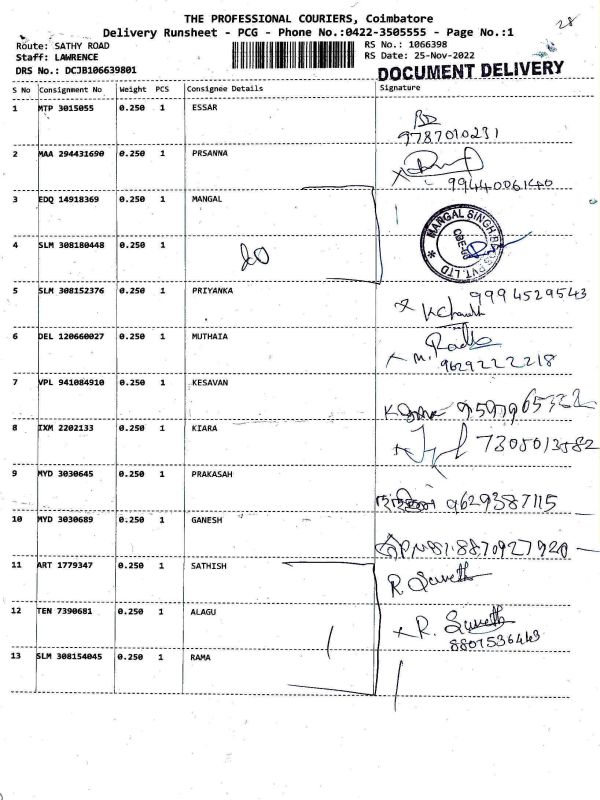 28
THE PROFESSIONAL COURIERS, Coimbatore
Delivery Runsheet - PCG - Phone No.:0422-3505555 - Page No.:1
Route: SATHY ROAD RS No.: 1066398
Staff: LAWRENCE RS Date: 25-Nov-2022
DRS No.: DCJB106639801 DOCUMENT DELIVERY
S No Consignment No Weight PCS Consignee Details Signature
1 MTP 3015055 0.250 1 ESSAR
9787010231
2 MAA 294431690 0.250 1 PRSANNA
9944006140
3 EDQ 14918369 0.250 1 MANGAL
MANGAL SINGH PVT. LTD
4 SLM 308180448 0.250 1
5 SLM 308152376 0.250 1 PRIYANKA 9994529543
6 DEL 120660027 0.250 1 MUTHAIA
9629222218
7 VPL 941084910 0.250 1 KESAVAN
8 IXM 2202133 0.250 1 KIARA
7305013582
9 MYD 3030645 0.250 1 PRAKASAH
9629387115
10 MYD 3030689 0.250 1 GANESH
8870927920
11 ART 1779347 0.250 1 SATHISH
12 TEN 7390681 0.250 1 ALAGU
8807536443
13 SLM 308154045 0.250 1 RAMA